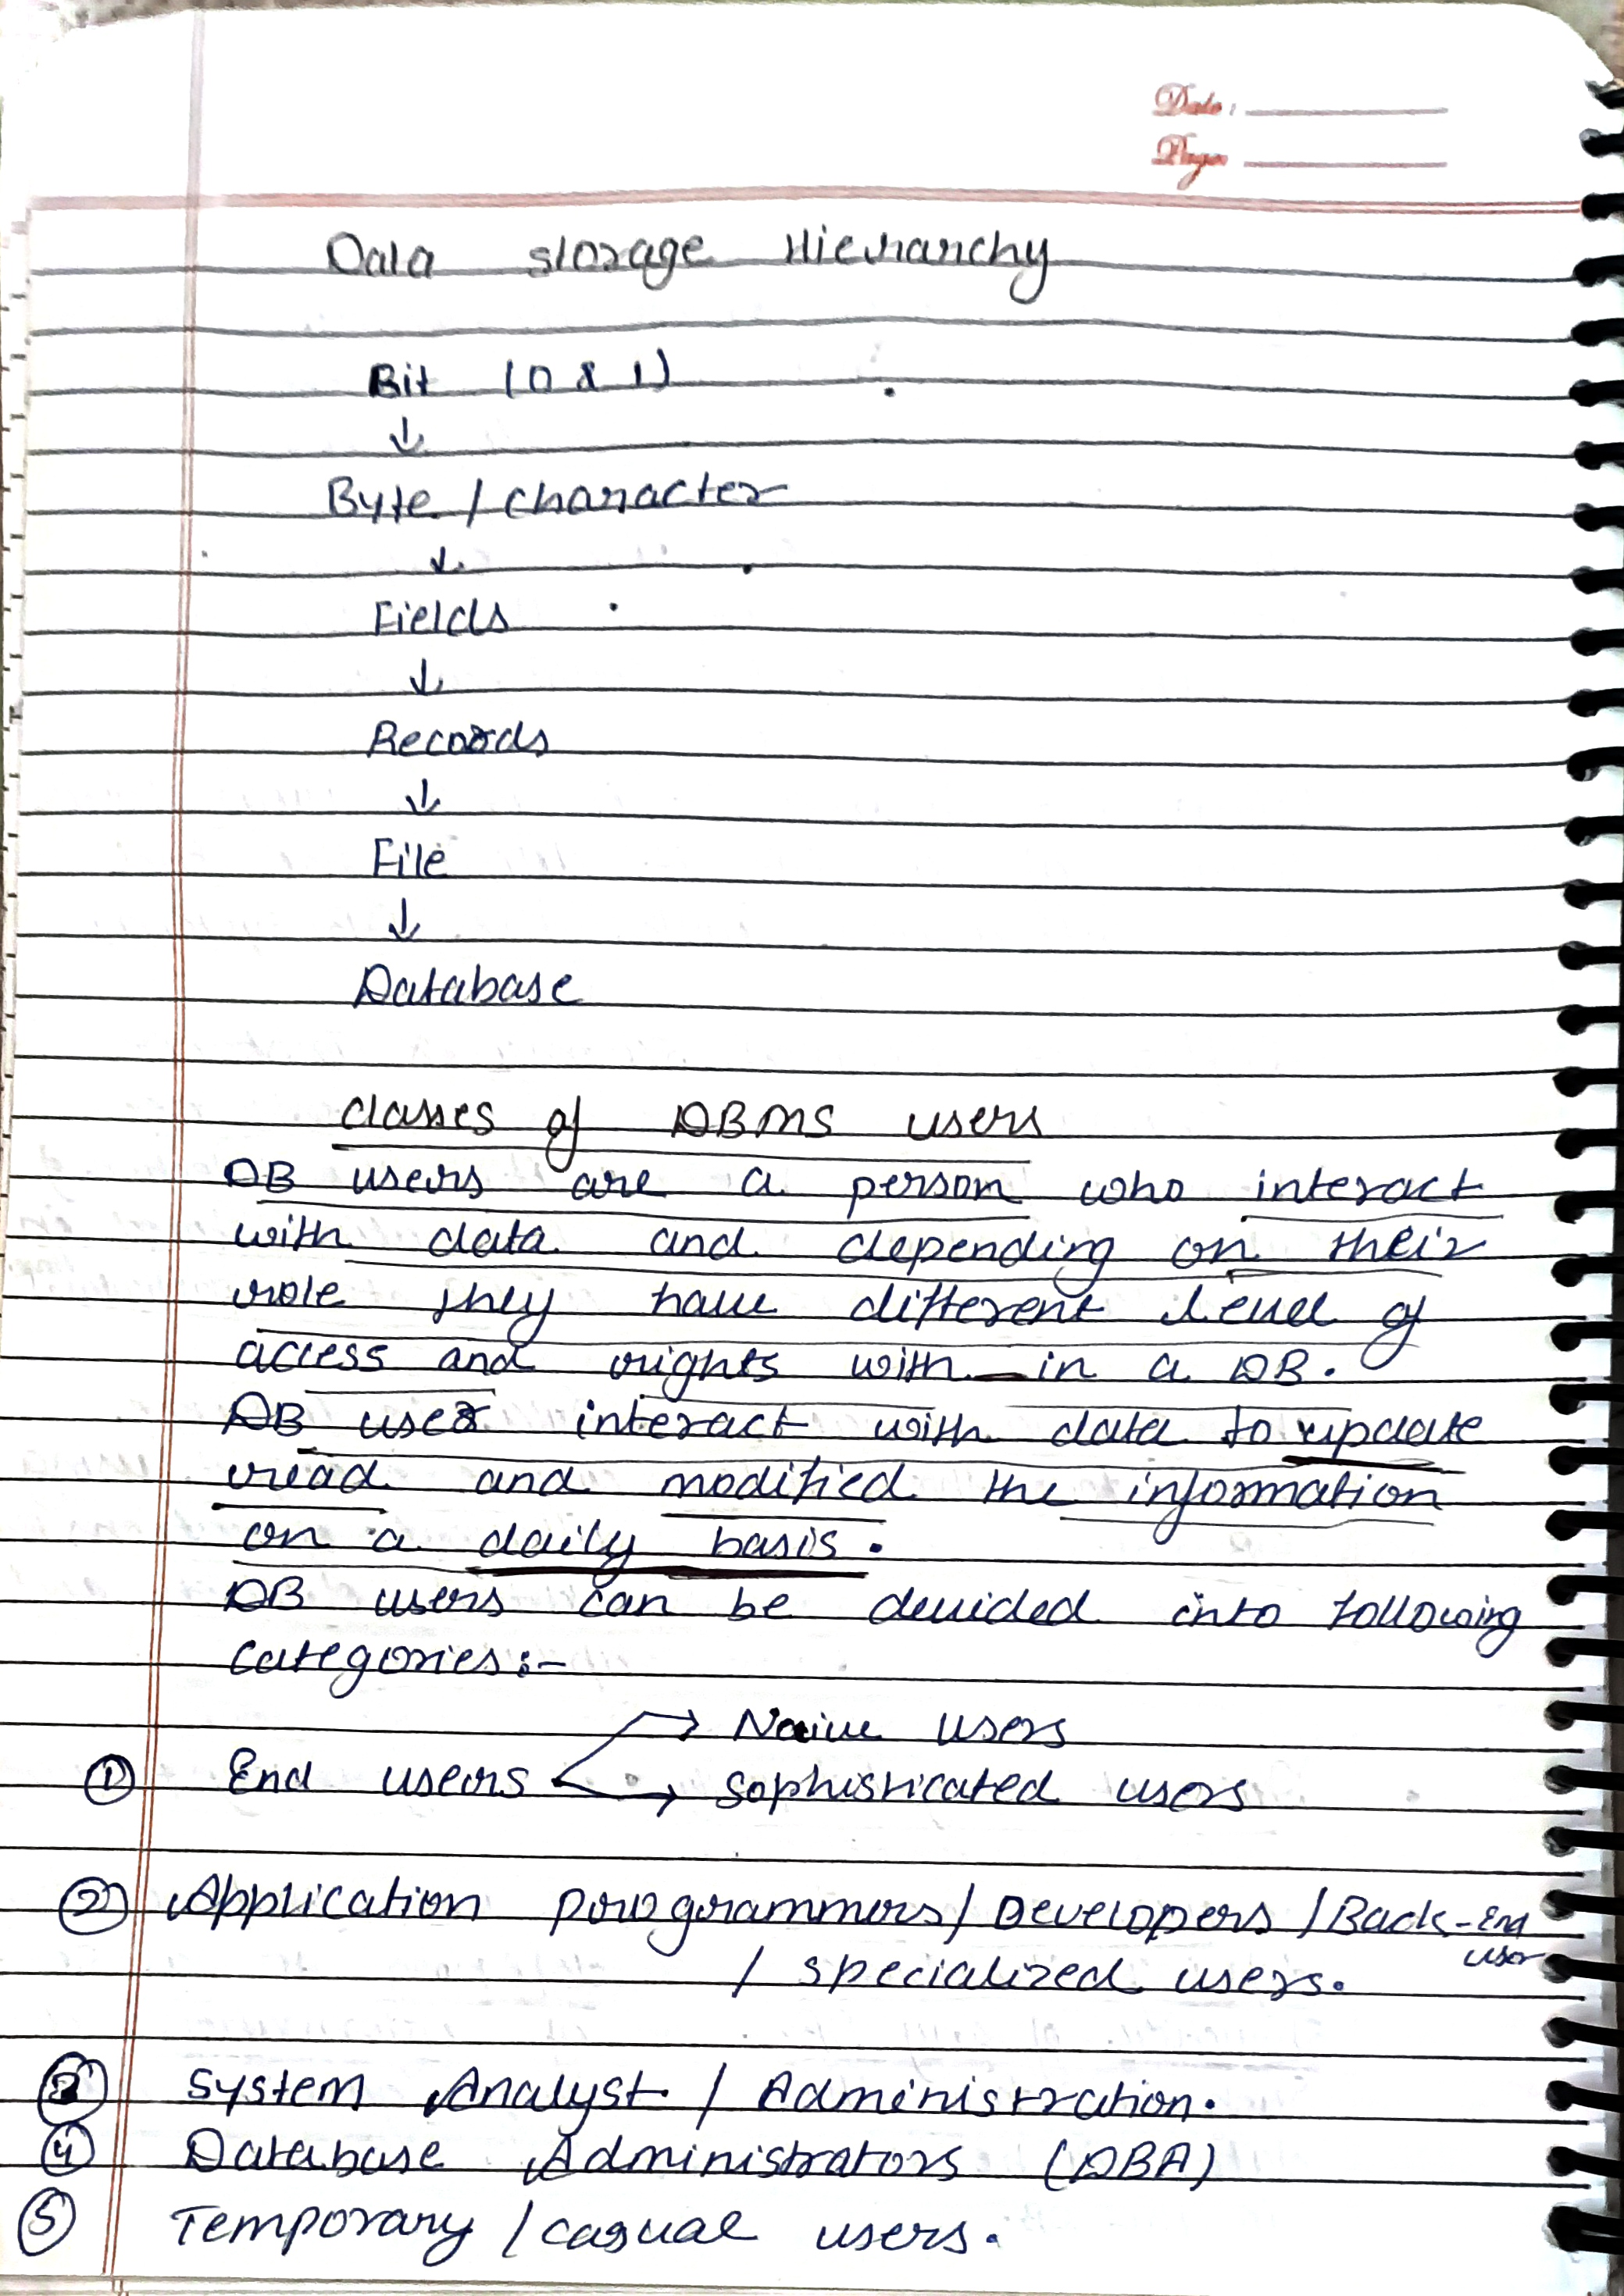 Date:
Page
Data storage Hierarchy
Bit (0 & 1)
↓
Byte / character
↓
Fields
↓
Records
↓
File
↓
Database
classes of DBMS users
DB users are a person who interact
with data and depending on their
role they have different level of
access and rights with-in a DB.
DB user interact with data to update
read and modified the information
on a daily basis.
DB users can be devided into following
categories:-
→ Naive users
① End users → Sophisticated users
② Application programmers / Developers / Back-End
user
/ specialized users.
③ System Analyst / Administration.
④ Database Administrators (DBA)
⑤ Temporary / casual users.